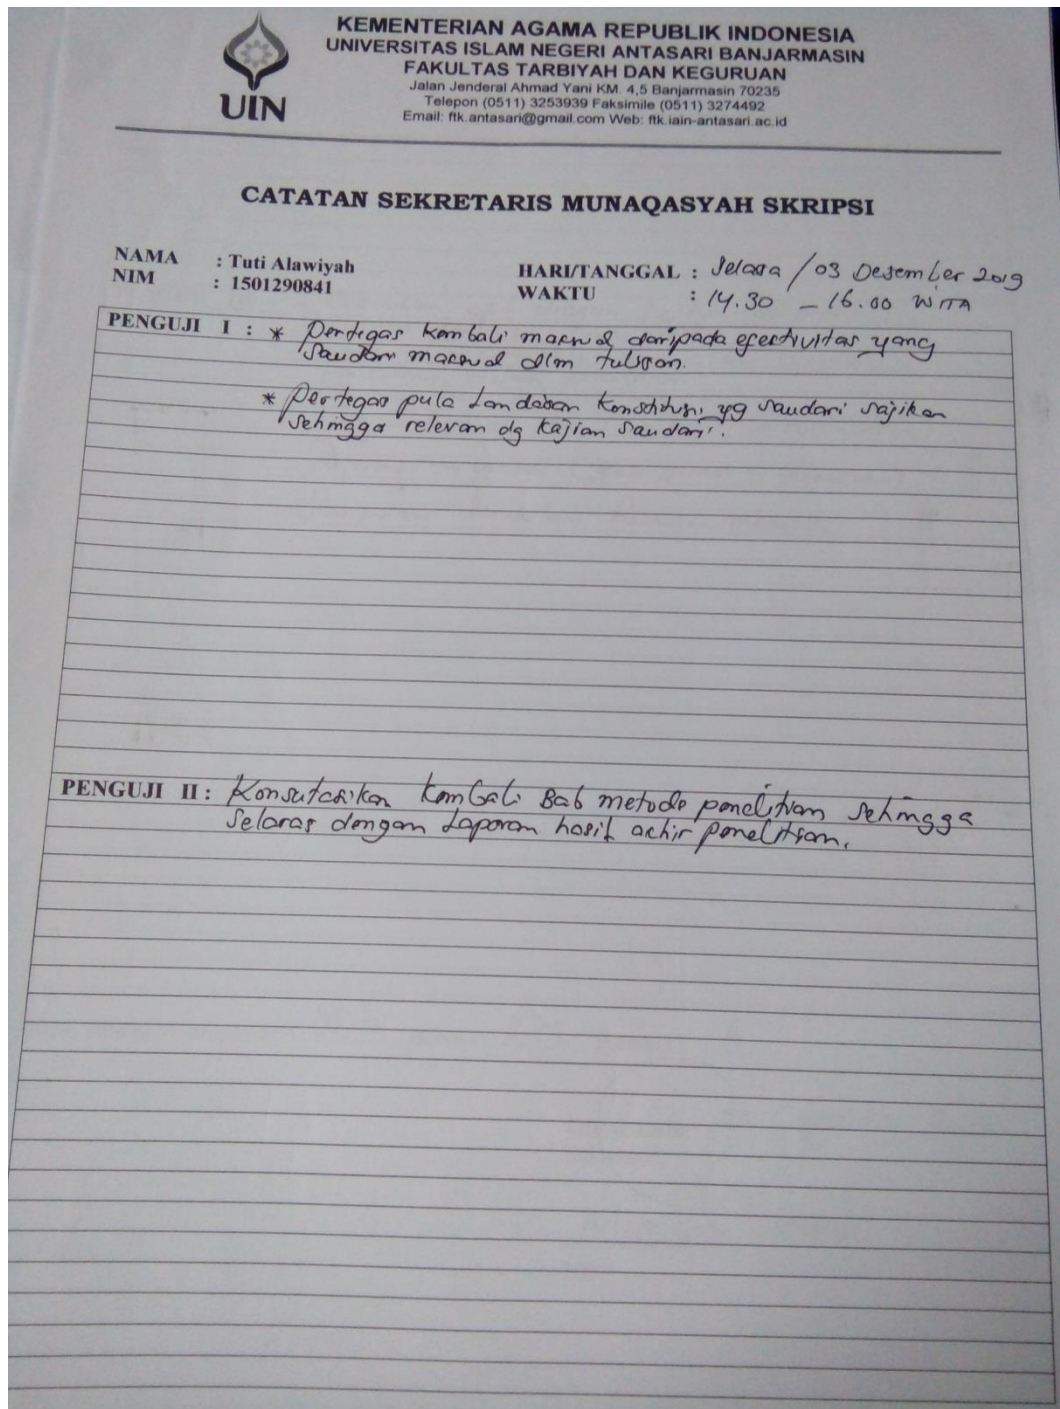 UIN
KEMENTERIAN AGAMA REPUBLIK INDONESIA
UNIVERSITAS ISLAM NEGERI ANTASARI BANJARMASIN
FAKULTAS TARBIYAH DAN KEGURUAN
Jalan Jenderal Ahmad Yani KM. 4,5 Banjarmasin 70235
Telepon (0511) 3253939 Faksimile (0511) 3274492
Email: ftk.antasari@gmail.com Web: ftk.iain-antasari.ac.id
CATATAN SEKRETARIS MUNAQASYAH SKRIPSI
NAMA : Tuti Alawiyah
NIM : 1501290841
HARI/TANGGAL : Selasa / 03 Desember 2019
WAKTU : 14.30 - 16.00 WITA
PENGUJI I : * Pertegas kembali maksud daripada efektivitas yang
maksud dlm tulisan.
* Pertegas pula Landasan Konstitusi yg saudari sajikan
sehingga relevan dg kajian saudari.
PENGUJI II : kembali Bab metode penelitian sehingga
selaras dengan Laporan hasil achir penelitian.